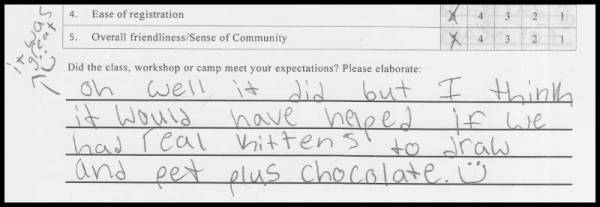 it was great!
4. Ease of registration X 4 3 2 1
5. Overall friendliness/Sense of Community X 4 3 2 1
Did the class, workshop or camp meet your expectations? Please elaborate:
oh well it did but I think
it would have helped if we
had real kittens to draw
and pet plus chocolate.